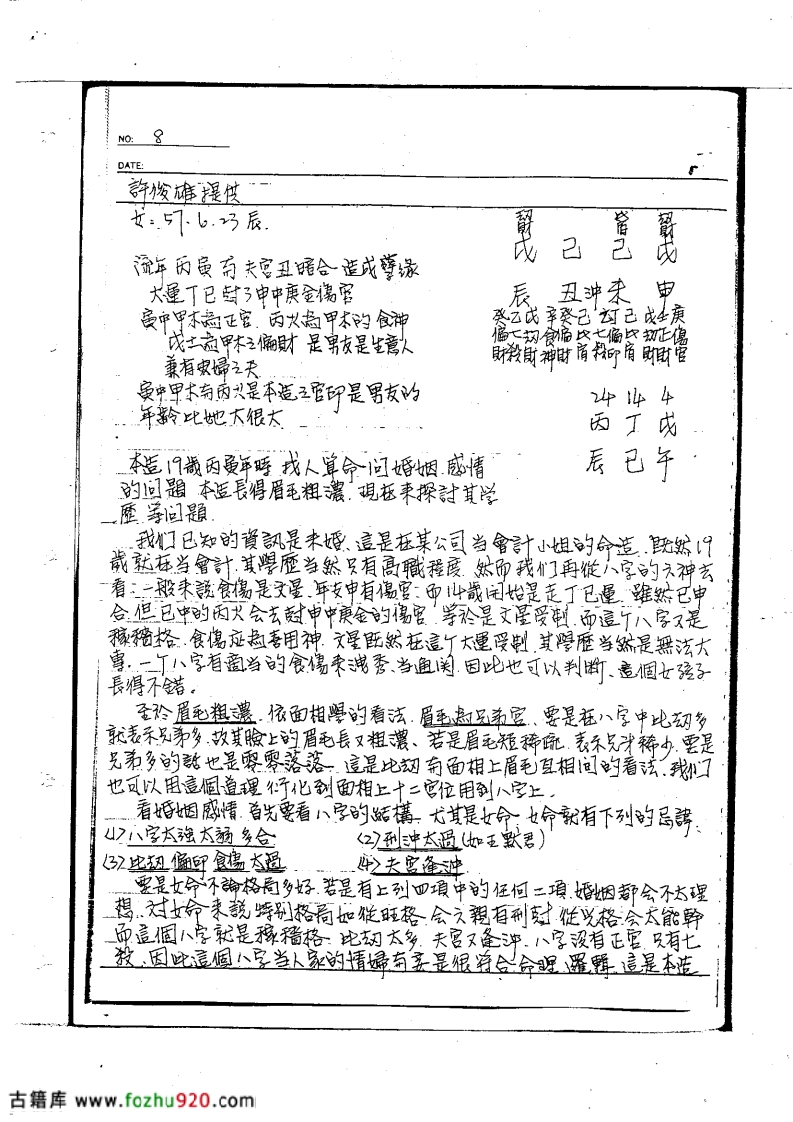 NO: 8
DATE:
許俊雄提供
女：57.6.23辰.
劫財 比肩 劫財
戊 己 己 戊
辰 丑沖未 申
癸乙戊 辛癸己 乙丁己 戊壬庚
偏七劫 食偏比 七偏比 劫正傷
財殺財 神財肩 殺印肩 財財官
24 14 4
丙 丁 戊
辰 巳 午
流年丙寅有夫宮丑暗合造成孽緣
大運丁巳尅了申中庚金傷官
寅中甲木為正官.丙火為甲木的食神
戊土為甲木之偏財 是男友是生意人
兼有家婦之夫
寅中甲木有丙火是本造之官印是男友的
年齡比她大很大
本造19歲丙寅年時 找人算命問婚姻.感情
的問題 本造長得眉毛粗濃.現在來探討其學
歷.等問題.
我们已知的資訊是未婚.這是在某公司当會計小姐的命造.既然19
歲就在当會計.其學歷当然只有高職程度.然而我们再從八字的六神去
看:一般來說食傷是文星.年支申有傷官.而14歲開始是走丁巳運.雖然巳申
合.但巳中的丙火会去尅申中庚金的傷官.等於是文星受制.而這个八字又是
稼穡格.食傷应為喜用神.文星既然在這个大運受制.其學歷当然是無法大
專.一个八字有適当的食傷來洩秀.当通関.因此也可以判断、這個女孩子
長得不錯。
至於眉毛粗濃.依面相學的看法.眉毛為兄弟宮、要是在八字中比劫多
就表示兄弟多.故其臉上的眉毛長又粗濃、若是眉毛短稀疏.表示兄弟稀少.要是
兄弟多的話也是零零落落.這是比劫有面相上眉毛互相間的看法.我们
也可以用這個道理.衍化到面相上十二宮位用到八字上。
看婚姻感情.首先要看八字的結構.尤其是女命.女命就有下列的忌諱:
(1)八字太強太弱多合 (2)刑沖太過(如王默君)
(3)比劫偏印食傷太過 (4)夫宮逢沖
要是女命不論格局多好.若是有上列四項中的任何二項.婚姻都会不太理
想.对女命來說.特别格局如從旺格.会六親有刑尅.從兒格.会太能幹
而這個八字就是稼穡格.比劫太多.夫宮又逢沖.八字没有正官.只有七
殺.因此這個八字当人家的情婦有妾是很符合命理.邏輯.這是本造
古籍库 www.fozhu920.com